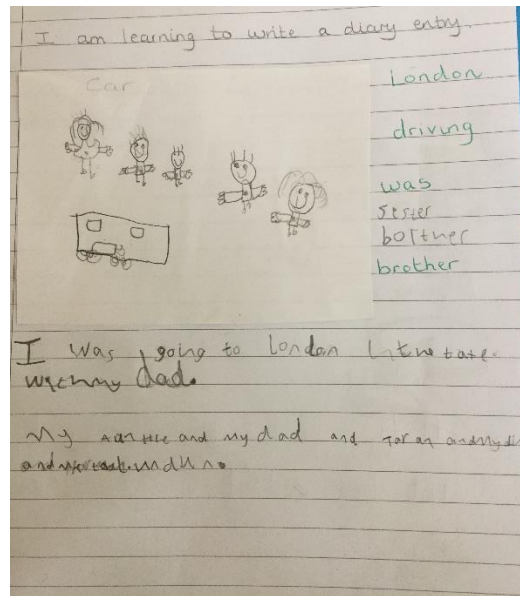 I am learning to write a diary entry.
Car
London
driving
was
sester
bortner
brother
I was going to London
with my dad.
My and my dad and and My
and